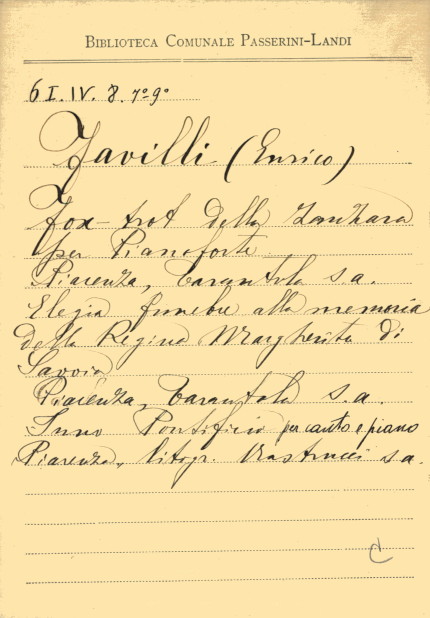 BIBLIOTECA COMUNALE PASSERINI-LANDI
6 I. IV. 8. 7º-9º
Favilli (Enrico)
Fox-trot della Zanzara
per Pianoforte
Piacenza, Tarantola s.a.
Elegia funebre alla memoria
della Regina Margherita di
Savoia
Piacenza, Tarantola s.a.
Inno Pontificio per canto e piano
Piacenza, litogr. s.a.
C